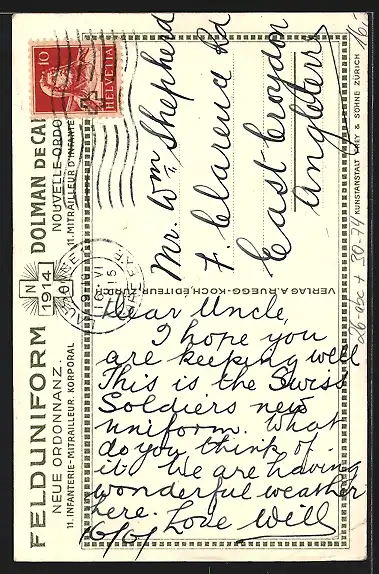 10
HELVETIA
Mr. Wm Shepherd
7. Clarena Rd
East Croydon
Angleterre
FELDUNIFORM
NEUE ORDONNANZ.
11. INFANTERIE-MITRAILLEUR. KORPORAL
1914
DOLMAN DE CA
NOUVELLE ORDO
11. MITRAILLEUR D'INFANTE
VERLAG A. RUEGG-KOCH, EDITEUR, ZÜRICH
KUNSTANSTALT FREY & SÖHNE ZÜRICH
Dear Uncle,
I hope you
are keeping well
This is the Swiss
Soldiers new
uniform. What
do you think of
it. We are having
wonderful weather
here. Love Will